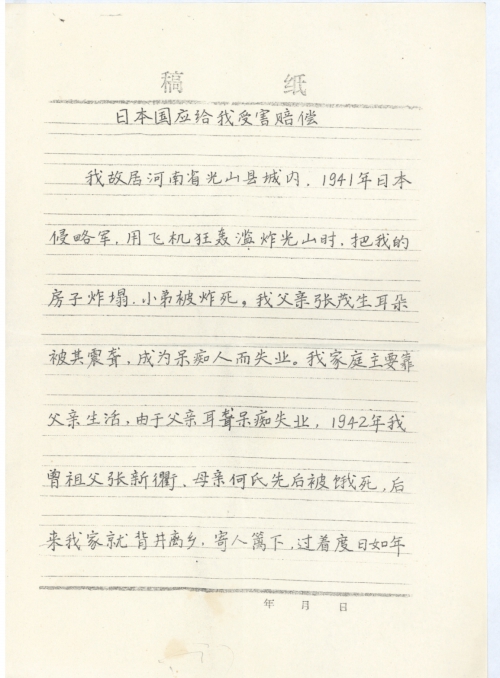 稿 纸
日本国应给我受害赔偿
我故居河南省光山县城内，1941年日本
侵略军，用飞机狂轰滥炸光山时，把我的
房子炸塌、小弟被炸死。我父亲张茂生耳朵
被其震聋，成为呆痴人而失业。我家庭主要靠
父亲生活，由于父亲耳聋呆痴失业，1942年我
曾祖父张新衢、母亲何氏先后被饿死，后
来我家就背井离乡，寄人篱下，过着度日如年
年 月 日